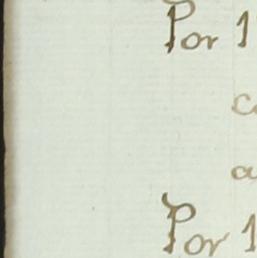 Por 1
c
a
Por 1